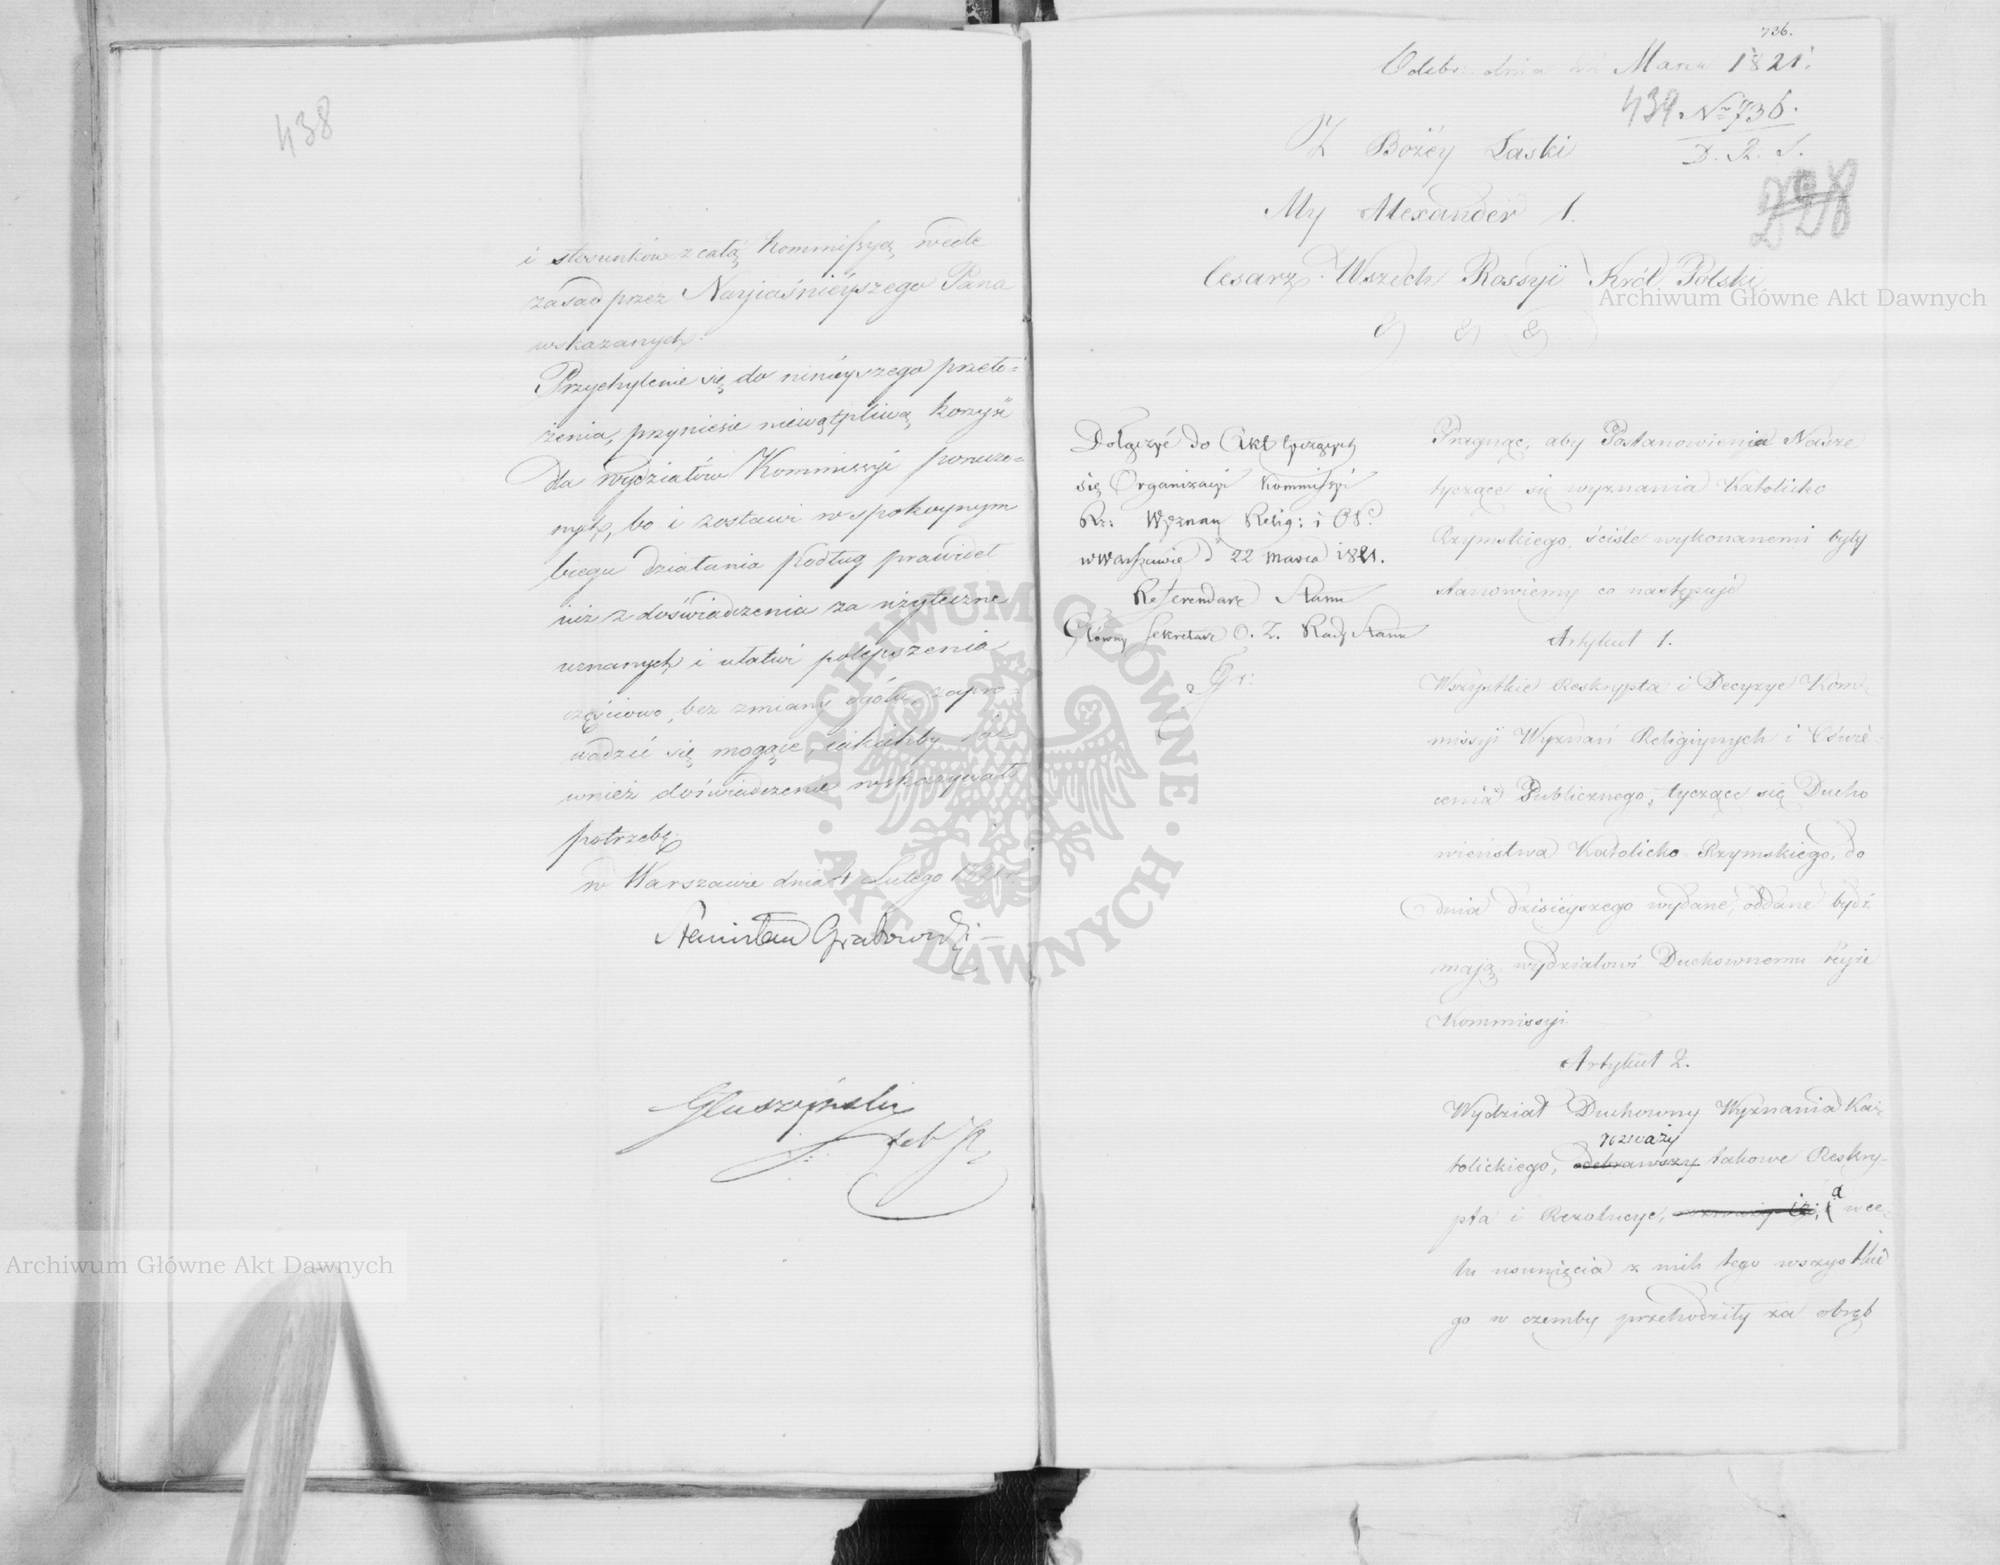 438
i stosunków z całą Kommissyą wedle
zasad przez Nayiaśnieyszego Pana
wskazanych.
Przychylenie się do ninieyszego przeło=
żenia, przyniesie niewątpliwą korzyść
dla wydziałów Kommissyi poruczo=
nych, bo i zostawi w spokoynym
biegu działania podług prawideł
iuż z doświadczenia za użyteczne
uznanych i ułatwi polepszenia
częściowo, bez zmiany ogółu, zapro=
wadzić się mogące, iakichby ró=
wnież doświadczenie wskazywało
potrzebę.
w Warszawie dnia 4 Lutego 1821 r.
Stanisław Grabowski
Głuszyński
736.
Odebr: dnia Marca 1821.
439 No 736.
D. R. S.
298
Z Bożey Łaski
My Alexander 1.
Cesarz Wszech Rossyi Król Polski
& & &
Dołączyć do Akt tyczących
się Organizacyi Kommissyi
Rz: Wyznań Relig: i Oś:
w Warszawie d 22 Marca 1821.
Referendarz Stanu
Główny Sekretarz O. Z. Rady Stanu
Pragnąc, aby Postanowienia Nasze
tyczące się wyznania Katolicko
Rzymskiego, ściśle wykonanemi były
stanowiemy co następuje
Artykuł 1.
Wszystkie Reskrypta i Decyzye Kom=
missyi Wyznań Religiynych i Oświe=
cenia Publicznego, tyczące się Ducho
wieństwa Katolicko Rzymskiego, do
dnia dzisieyszego wydane, oddane bydź
mają wydziałowi Duchownemu teyże
Kommissyi
Artykuł 2.
Wydział Duchowny Wyznania Ka=
rozważy
tolickiego, odebrawszy takowe Reskry=
pta i Rezolucye, a w ce=
lu usunięcia z nich tego wszystkie
go w czemby przechodziły za obręb
Archiwum Główne Akt Dawnych
Archiwum Główne Akt Dawnych
ARCHIWUM GŁÓWNE · AKT DAWNYCH ·